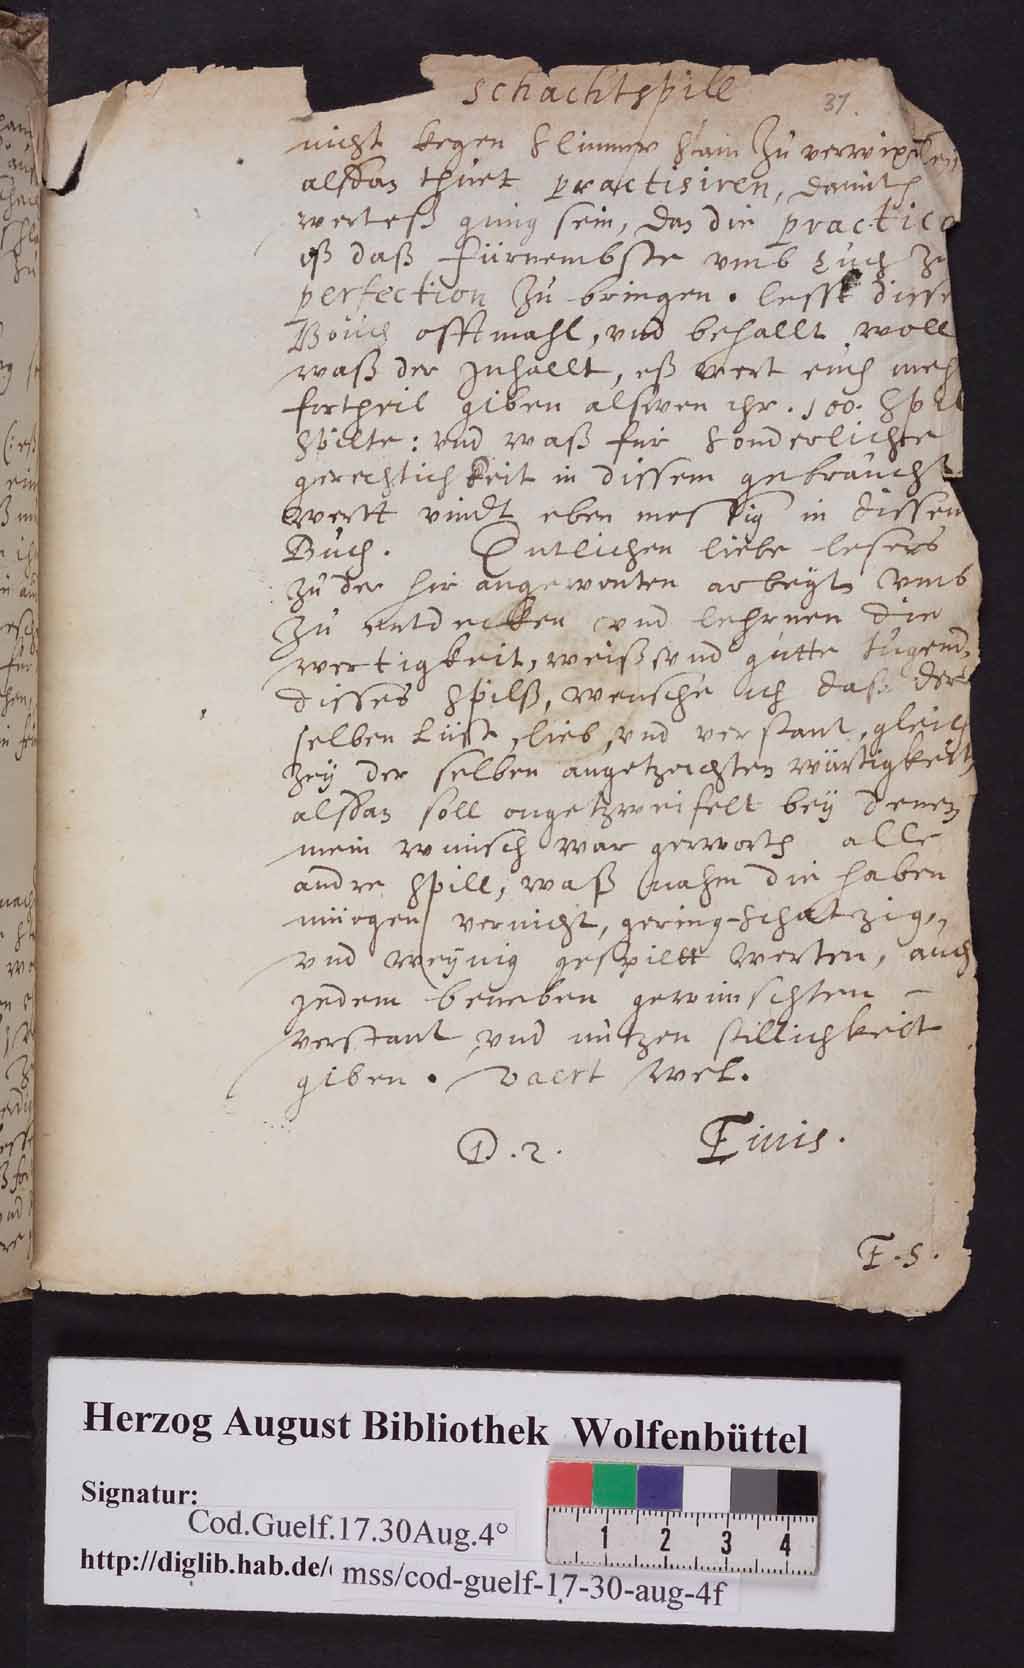 schachtspill
37
nicht kegen slimmer stain zu verwixslen
alsdan thuet practisiren, damith
wertess gnug sein, das die practica
ist dass fürnembste vmb Euch zu
perfection zu bringen. lesst diese
Bouch offtmahl, vnd behallt woll
wass der Inhallt, ess wert euch meh
fortheil giben alswen ihr. 100. Spil
spilte: vnd wass für sonderlichte
gerechtichkeit in dissem gebraucht
wertt vindt eben messig in dissem
Buch. Entlichen liebe lesers
zu der hir angewenten arbeyt vmb
zu entdecken vnd lehrnen die
wertigkeit, weiss vnd gutte tugend,
disses spilss, wensche ich dass der
selben Lust, lieb, vnd verstant, gleich
zey der selben angetzechten würtigkeit
alsdan soll ongetzweifelt bey denen
mein wunsch war gerworth alle
andre spill, wass nahm die haben
mürgen vernicht, gering-schatzig,
vnd weynig gespiltt werten, auch
jedem beneben gewünschten -
verstant vnd nutzen stillichkeit
giben. vaert wel.
D. 2. Finis.
F. S.
Herzog August Bibliothek Wolfenbüttel
Signatur:
Cod.Guelf.17.30Aug.4°
http://diglib.hab.de/ mss/cod-guelf-17-30-aug-4f
1 2 3 4